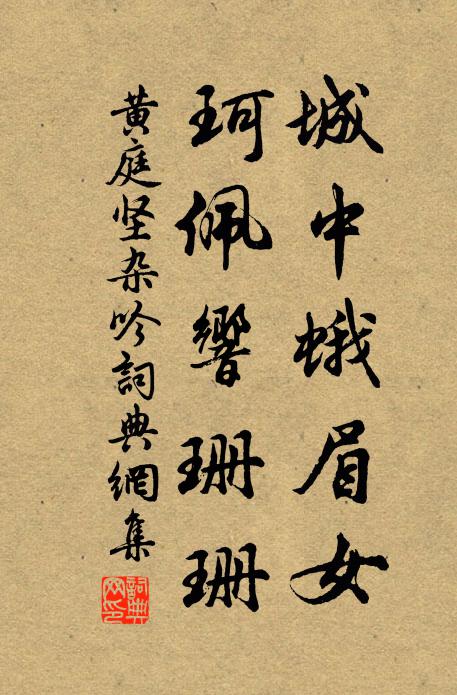 城中蛾眉女
珂佩響珊珊
黄庭坚杂吟詞典網集
詞典網印